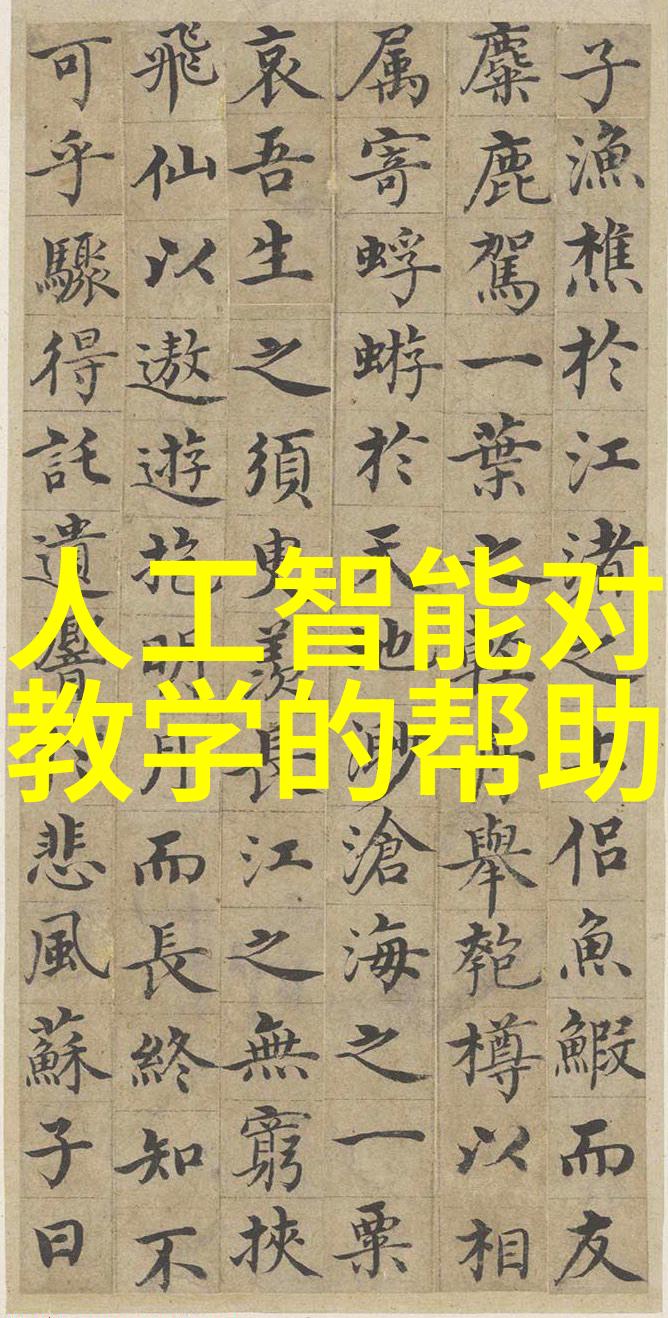 子漁樵於江渚之上侶魚鰕而友
麋鹿駕一葉之輕舟舉匏樽以相
属寄蜉蝣於天地渺滄海之一粟
哀吾生之須臾羨長江之無窮挾
飛仙以遨遊抱明月而長終知不
可乎驟得託遺響於悲風蘇子曰
人工智能对
教学的帮助